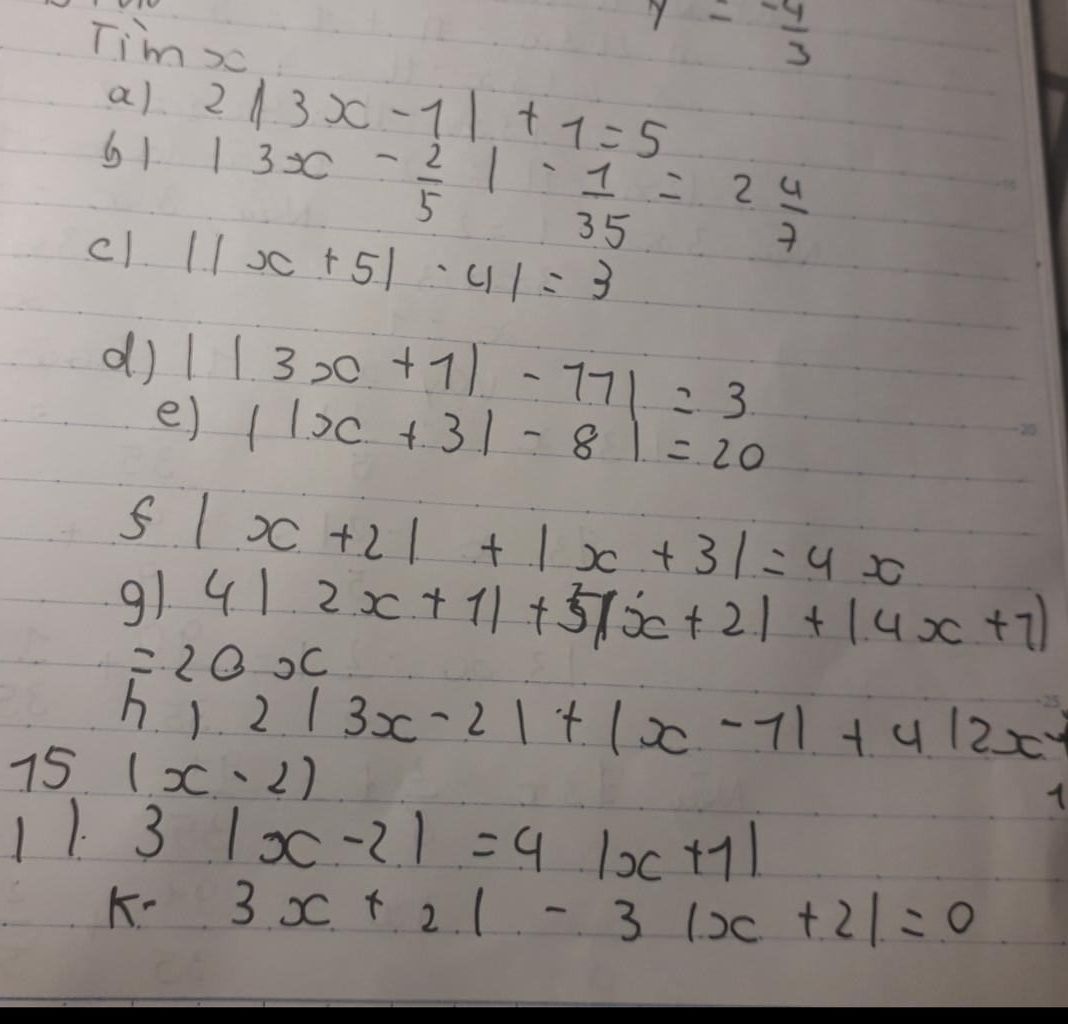 y = -4/3
Tìm x
a) 2|3x - 1| + 1 = 5
b) |3x - 2/5| - 1/35 = 2 4/7
c) ||x + 5| - 4| = 3
d) ||3x + 1| - 11| = 3
e) ||x + 3| - 8| = 20
f |x + 2| + |x + 3| = 4x
g) 4|2x + 1| + |x + 2| + |4x + 1|
= 20x
h) 2|3x - 2| + |x - 1| + 4|2x -
15 (x - 2) 1
i) 3 |x - 2| = 4 |x + 1|
K- 3x + 2| - 3 |x + 2| = 0